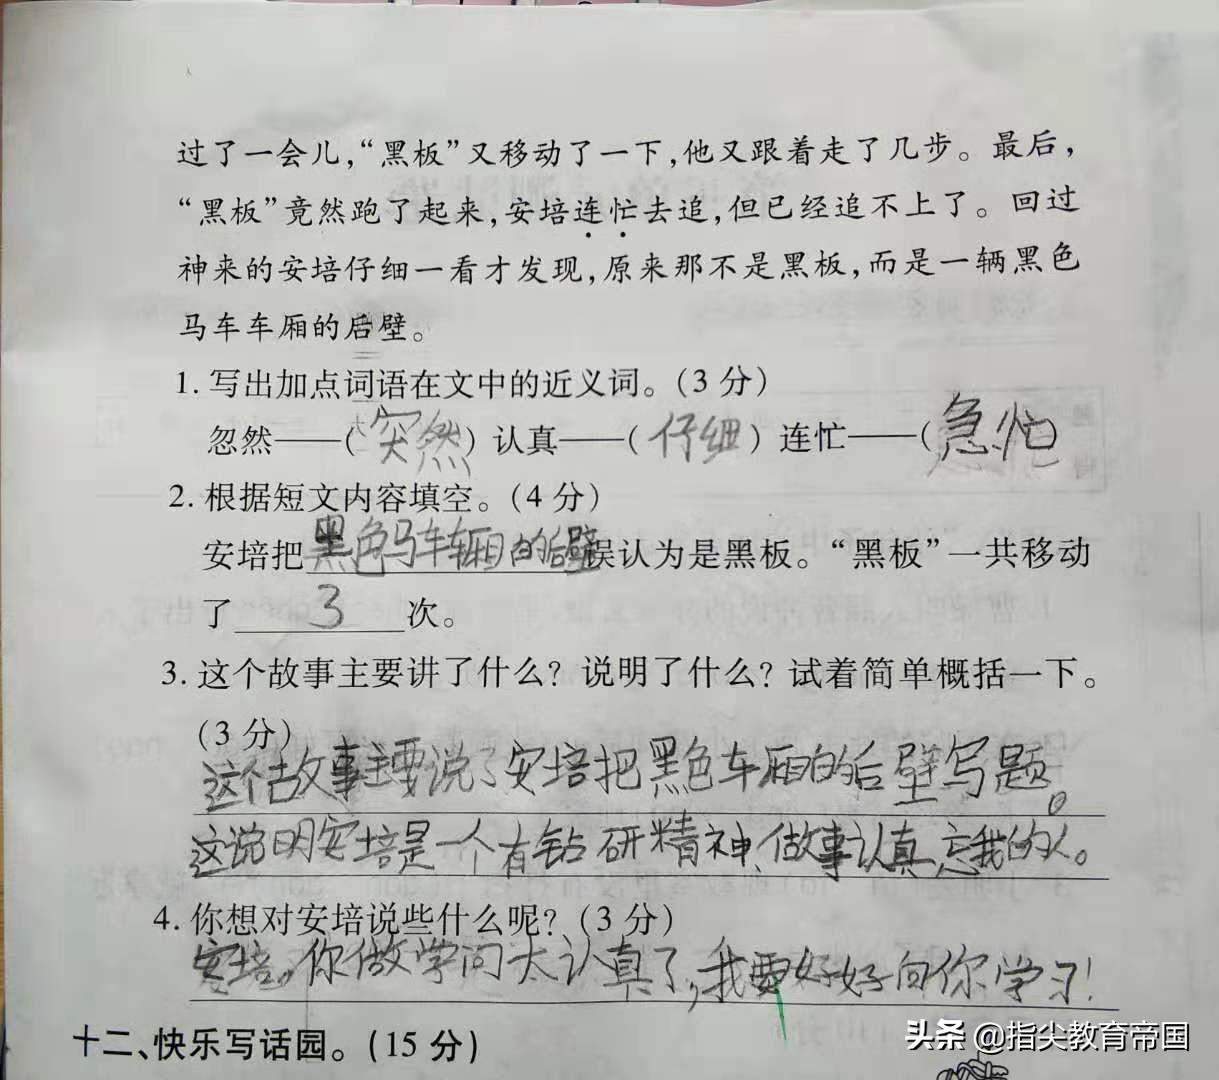 过了一会儿，“黑板”又移动了一下，他又跟着走了几步。最后，
“黑板”竟然跑了起来，安培连忙去追，但已经追不上了。回过
神来的安培仔细一看才发现，原来那不是黑板，而是一辆黑色
马车车厢的后壁。
1. 写出加点词语在文中的近义词。（3 分）
忽然——（突然）认真——（仔细）连忙——（急忙）
2. 根据短文内容填空。（4 分）
安培把黑色马车车厢的后壁误认为是黑板。“黑板”一共移动
了 3 次。
3. 这个故事主要讲了什么？说明了什么？试着简单概括一下。
（3 分）
这个故事主要说了安培把黑色车厢的后壁写题。
这说明安培是一个有钻研精神、做事认真、忘我的人。
4. 你想对安培说些什么呢？（3 分）
安培，你做学问太认真了，我要好好向你学习！
十二、快乐写话园。（15 分）
头条 @指尖教育帝国